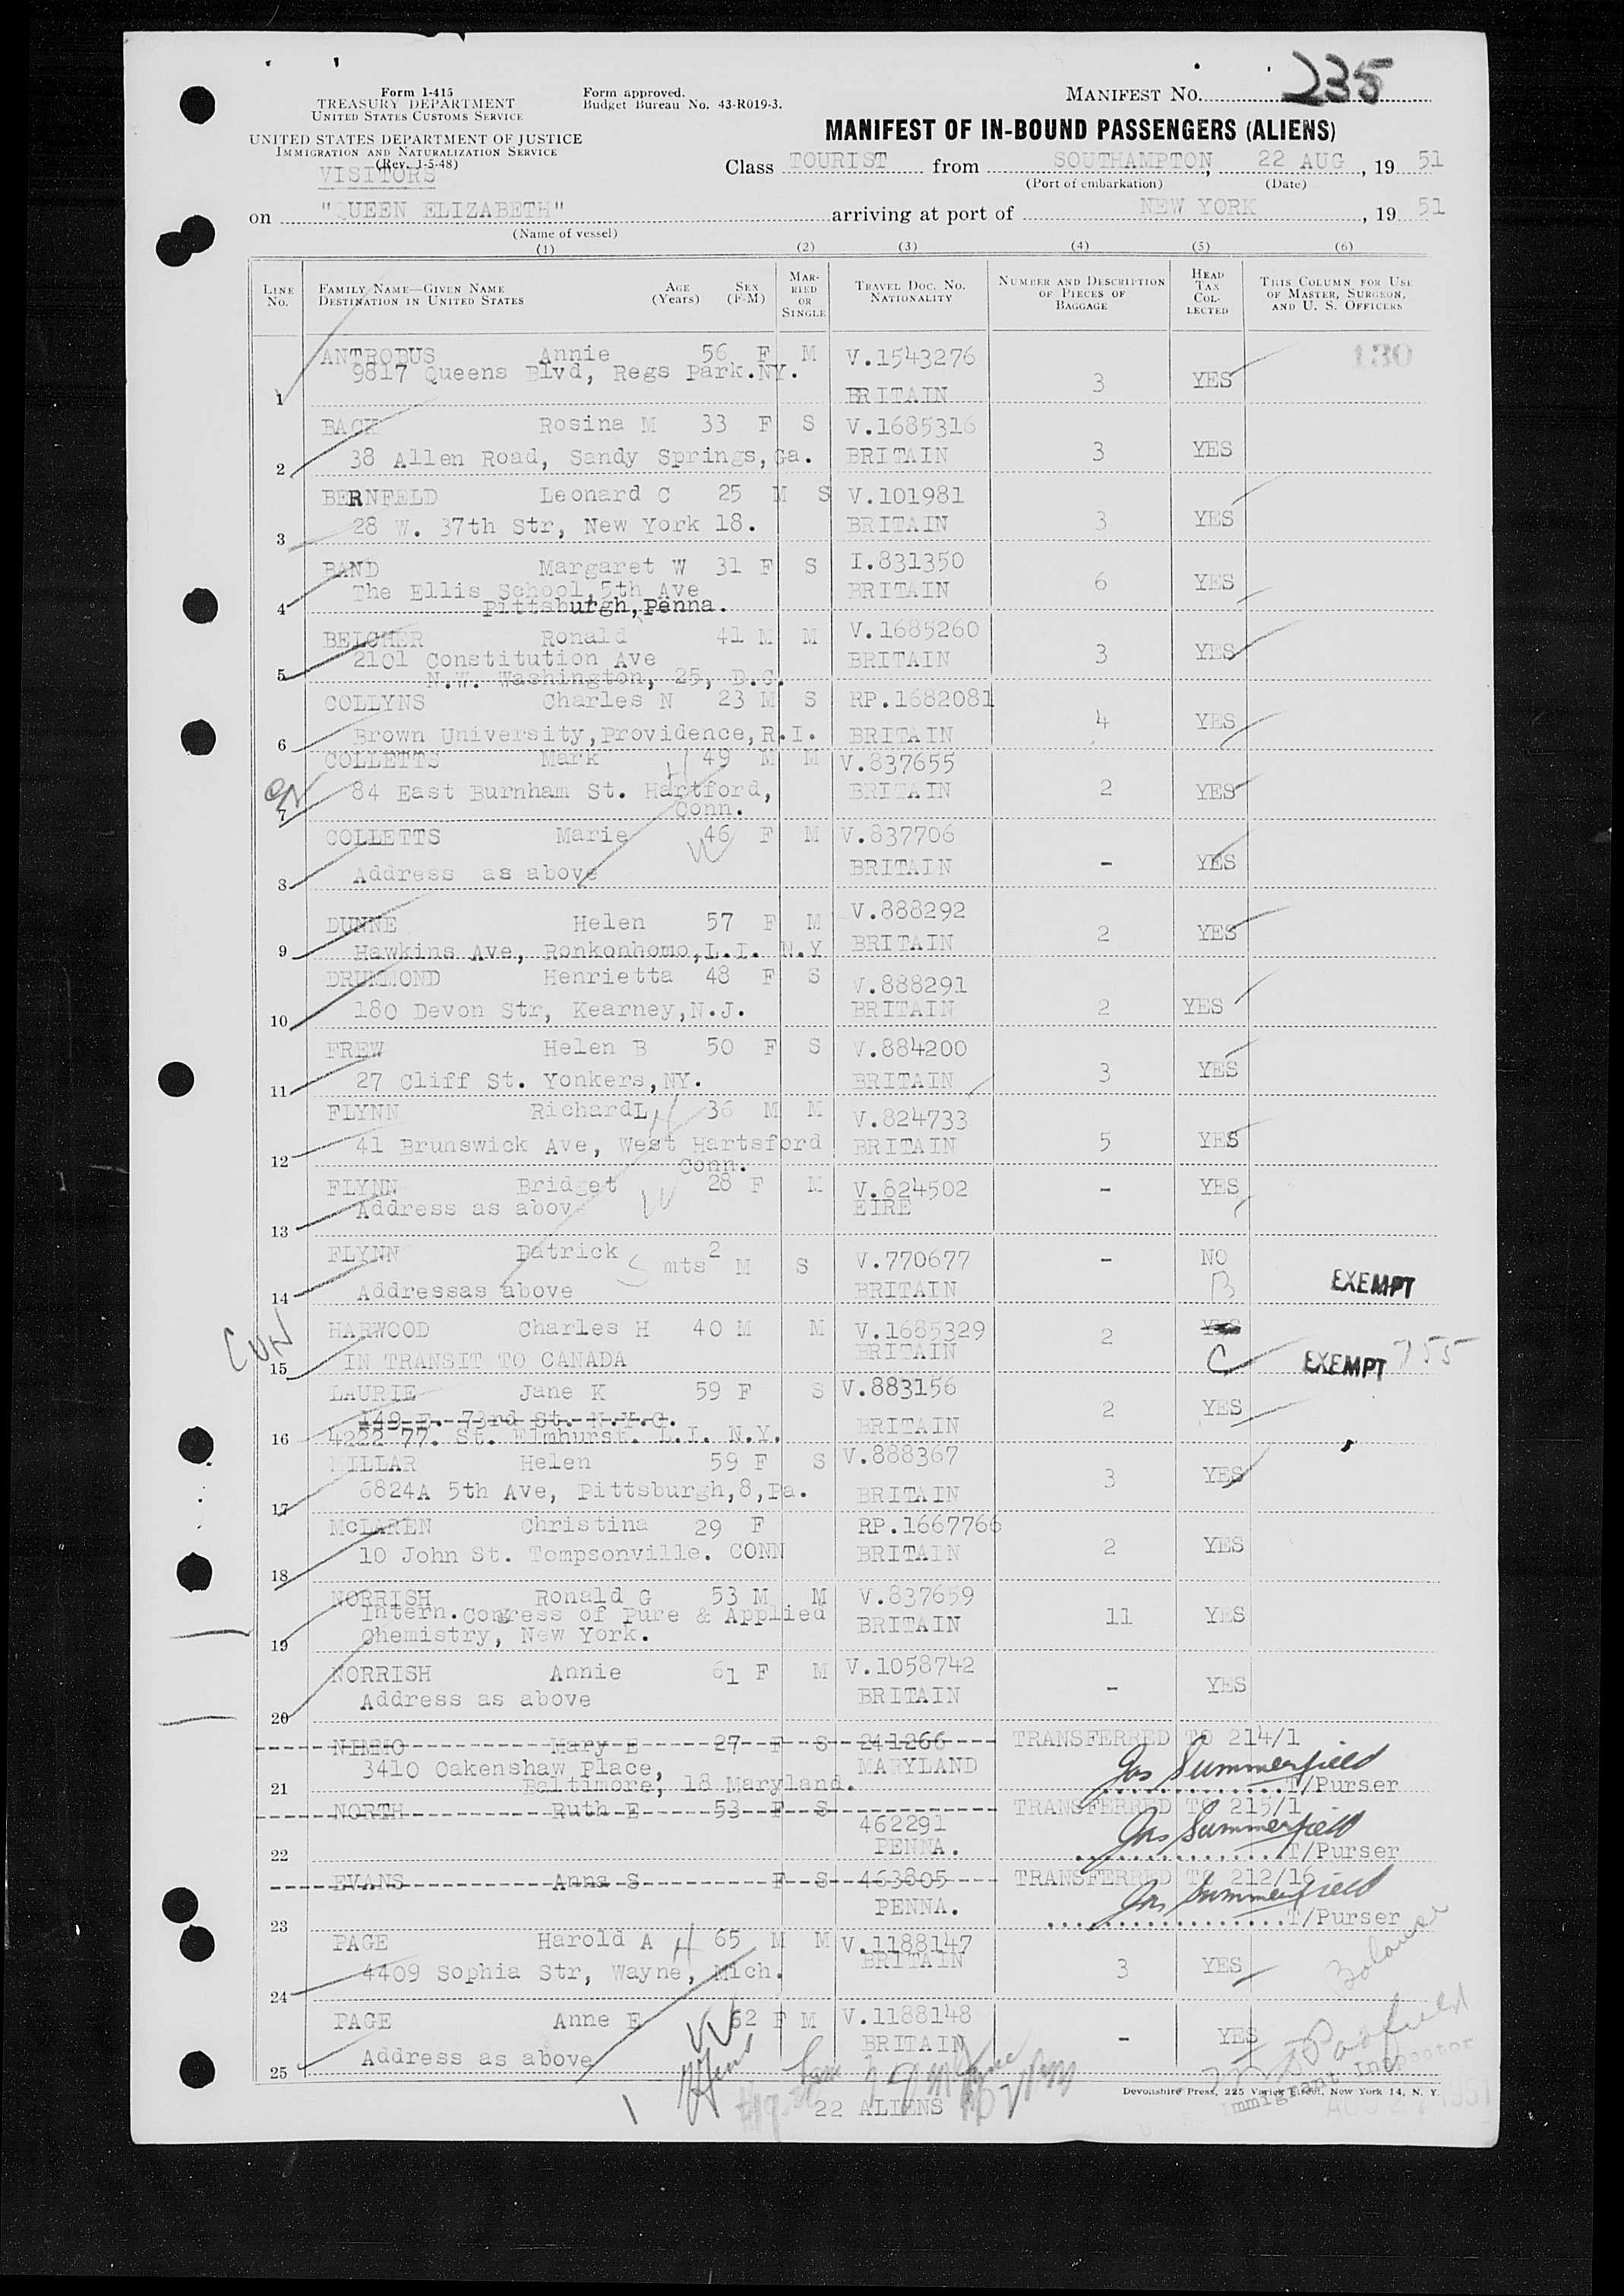 235
Form I-415
TREASURY DEPARTMENT
UNITED STATES CUSTOMS SERVICE
UNITED STATES DEPARTMENT OF JUSTICE
IMMIGRATION AND NATURALIZATION SERVICE
(Rev. 1-5-48)
VISITORS
Form approved.
Budget Bureau No. 43-R019-3.
MANIFEST NO.
MANIFEST OF IN-BOUND PASSENGERS (ALIENS)
Class TOURIST from SOUTHAMPTON, 22 AUG, 19 51
(Port of embarkation) (Date)
on "QUEEN ELIZABETH" arriving at port of NEW YORK, 19 51
(Name of vessel)
(1) (2) (3) (4) (5) (6)
LINE NO. FAMILY NAME—GIVEN NAME DESTINATION IN UNITED STATES AGE (Years) SEX (F-M) MARRIED OR SINGLE TRAVEL DOC. NO. NATIONALITY NUMBER AND DESCRIPTION OF PIECES OF BAGGAGE HEAD TAX COLLECTED THIS COLUMN FOR USE OF MASTER, SURGEON, AND U. S. OFFICERS
130
ANTROBUS Annie 56 F M V.1543276
9817 Queens Blvd, Regs Park.NY.
1 BRITAIN 3 YES
BACK Rosina M 33 F S V.1685316
2 38 Allen Road, Sandy Springs, Ga. BRITAIN 3 YES
BERNFELD Leonard C 25 M S V.101981
3 28 W. 37th Str, New York 18. BRITAIN 3 YES
BAND Margaret W 31 F S I.831350
The Ellis School, 5th Ave BRITAIN 6 YES
4 Pittsburgh, Penna.
BELCHER Ronald 41 M M V.1685260
2101 Constitution Ave BRITAIN 3 YES
5 N.W. Washington, 25, D.C.
COLLYNS Charles N 23 M S RP.1682081
6 Brown University, Providence, R.I. BRITAIN 4 YES
COLLETTS Mark H 49 M M V.837655
7 84 East Burnham St. Hartford, BRITAIN 2 YES
Conn.
COLLETTS Marie W 46 F M V.837706
8 Address as above BRITAIN - YES
DUNNE Helen 57 F M V.888292
9 Hawkins Ave, Ronkonhomo, L.I. N.Y BRITAIN 2 YES
DRUMMOND Henrietta 48 F S V.888291
10 180 Devon Str, Kearney, N.J. BRITAIN 2 YES
FREW Helen B 50 F S V.884200
11 27 Cliff St. Yonkers, NY. BRITAIN 3 YES
FLYNN RichardL H 36 M M V.824733
12 41 Brunswick Ave, West Hartsford BRITAIN 5 YES
Conn.
FLYNN Bridget W 28 F M V.824502 - YES
13 Address as abov EIRE
FLYNN Patrick S mts 2 M S V.770677 - NO
14 Addressas above BRITAIN B EXEMPT
CUN
HARWOOD Charles H 40 M M V.1685329 2 YES
15 IN TRANSIT TO CANADA BRITAIN C EXEMPT 755
LAURIE Jane K 59 F S V.883156
149 E. 73rd St. N.Y.C. BRITAIN 2 YES
16 4222 77. St. Elmhurst. L.I. N.Y.
MILLAR Helen 59 F S V.888367
17 6824A 5th Ave, Pittsburgh, 8, Pa. BRITAIN 3 YES
McLAREN Christina 29 F RP.1667766
18 10 John St. Tompsonville. CONN BRITAIN 2 YES
NORRISH Ronald G 53 M M V.837659
Intern. Congress of Pure & Applied BRITAIN 11 YES
19 Chemistry, New York.
NORRISH Annie 61 F M V.1058742
20 Address as above BRITAIN - YES
NIMMO Mary E 27 F S 241266 TRANSFERRED TO 214/1
3410 Oakenshaw Place, MARYLAND Jas Summerfield
21 Baltimore, 18 Maryland. T/Purser
NORTH Ruth E 53 F S TRANSFERRED TO 215/1
462291 Jas Summerfield
22 PENNA. T/Purser
EVANS Anna S F S 463805 TRANSFERRED TO 212/16
PENNA. Jas Summerfield
23 T/Purser
PAGE Harold A H 65 M M V.1188147
24 4409 Sophia Str, Wayne, Mich. BRITAIN 3 YES
PAGE Anne E W 62 F M V.1188148
25 Address as above BRITAIN - YES
Immigrant Inspector
Devonshire Press, 225 Varick Street, New York 14, N. Y.
22 ALIENS